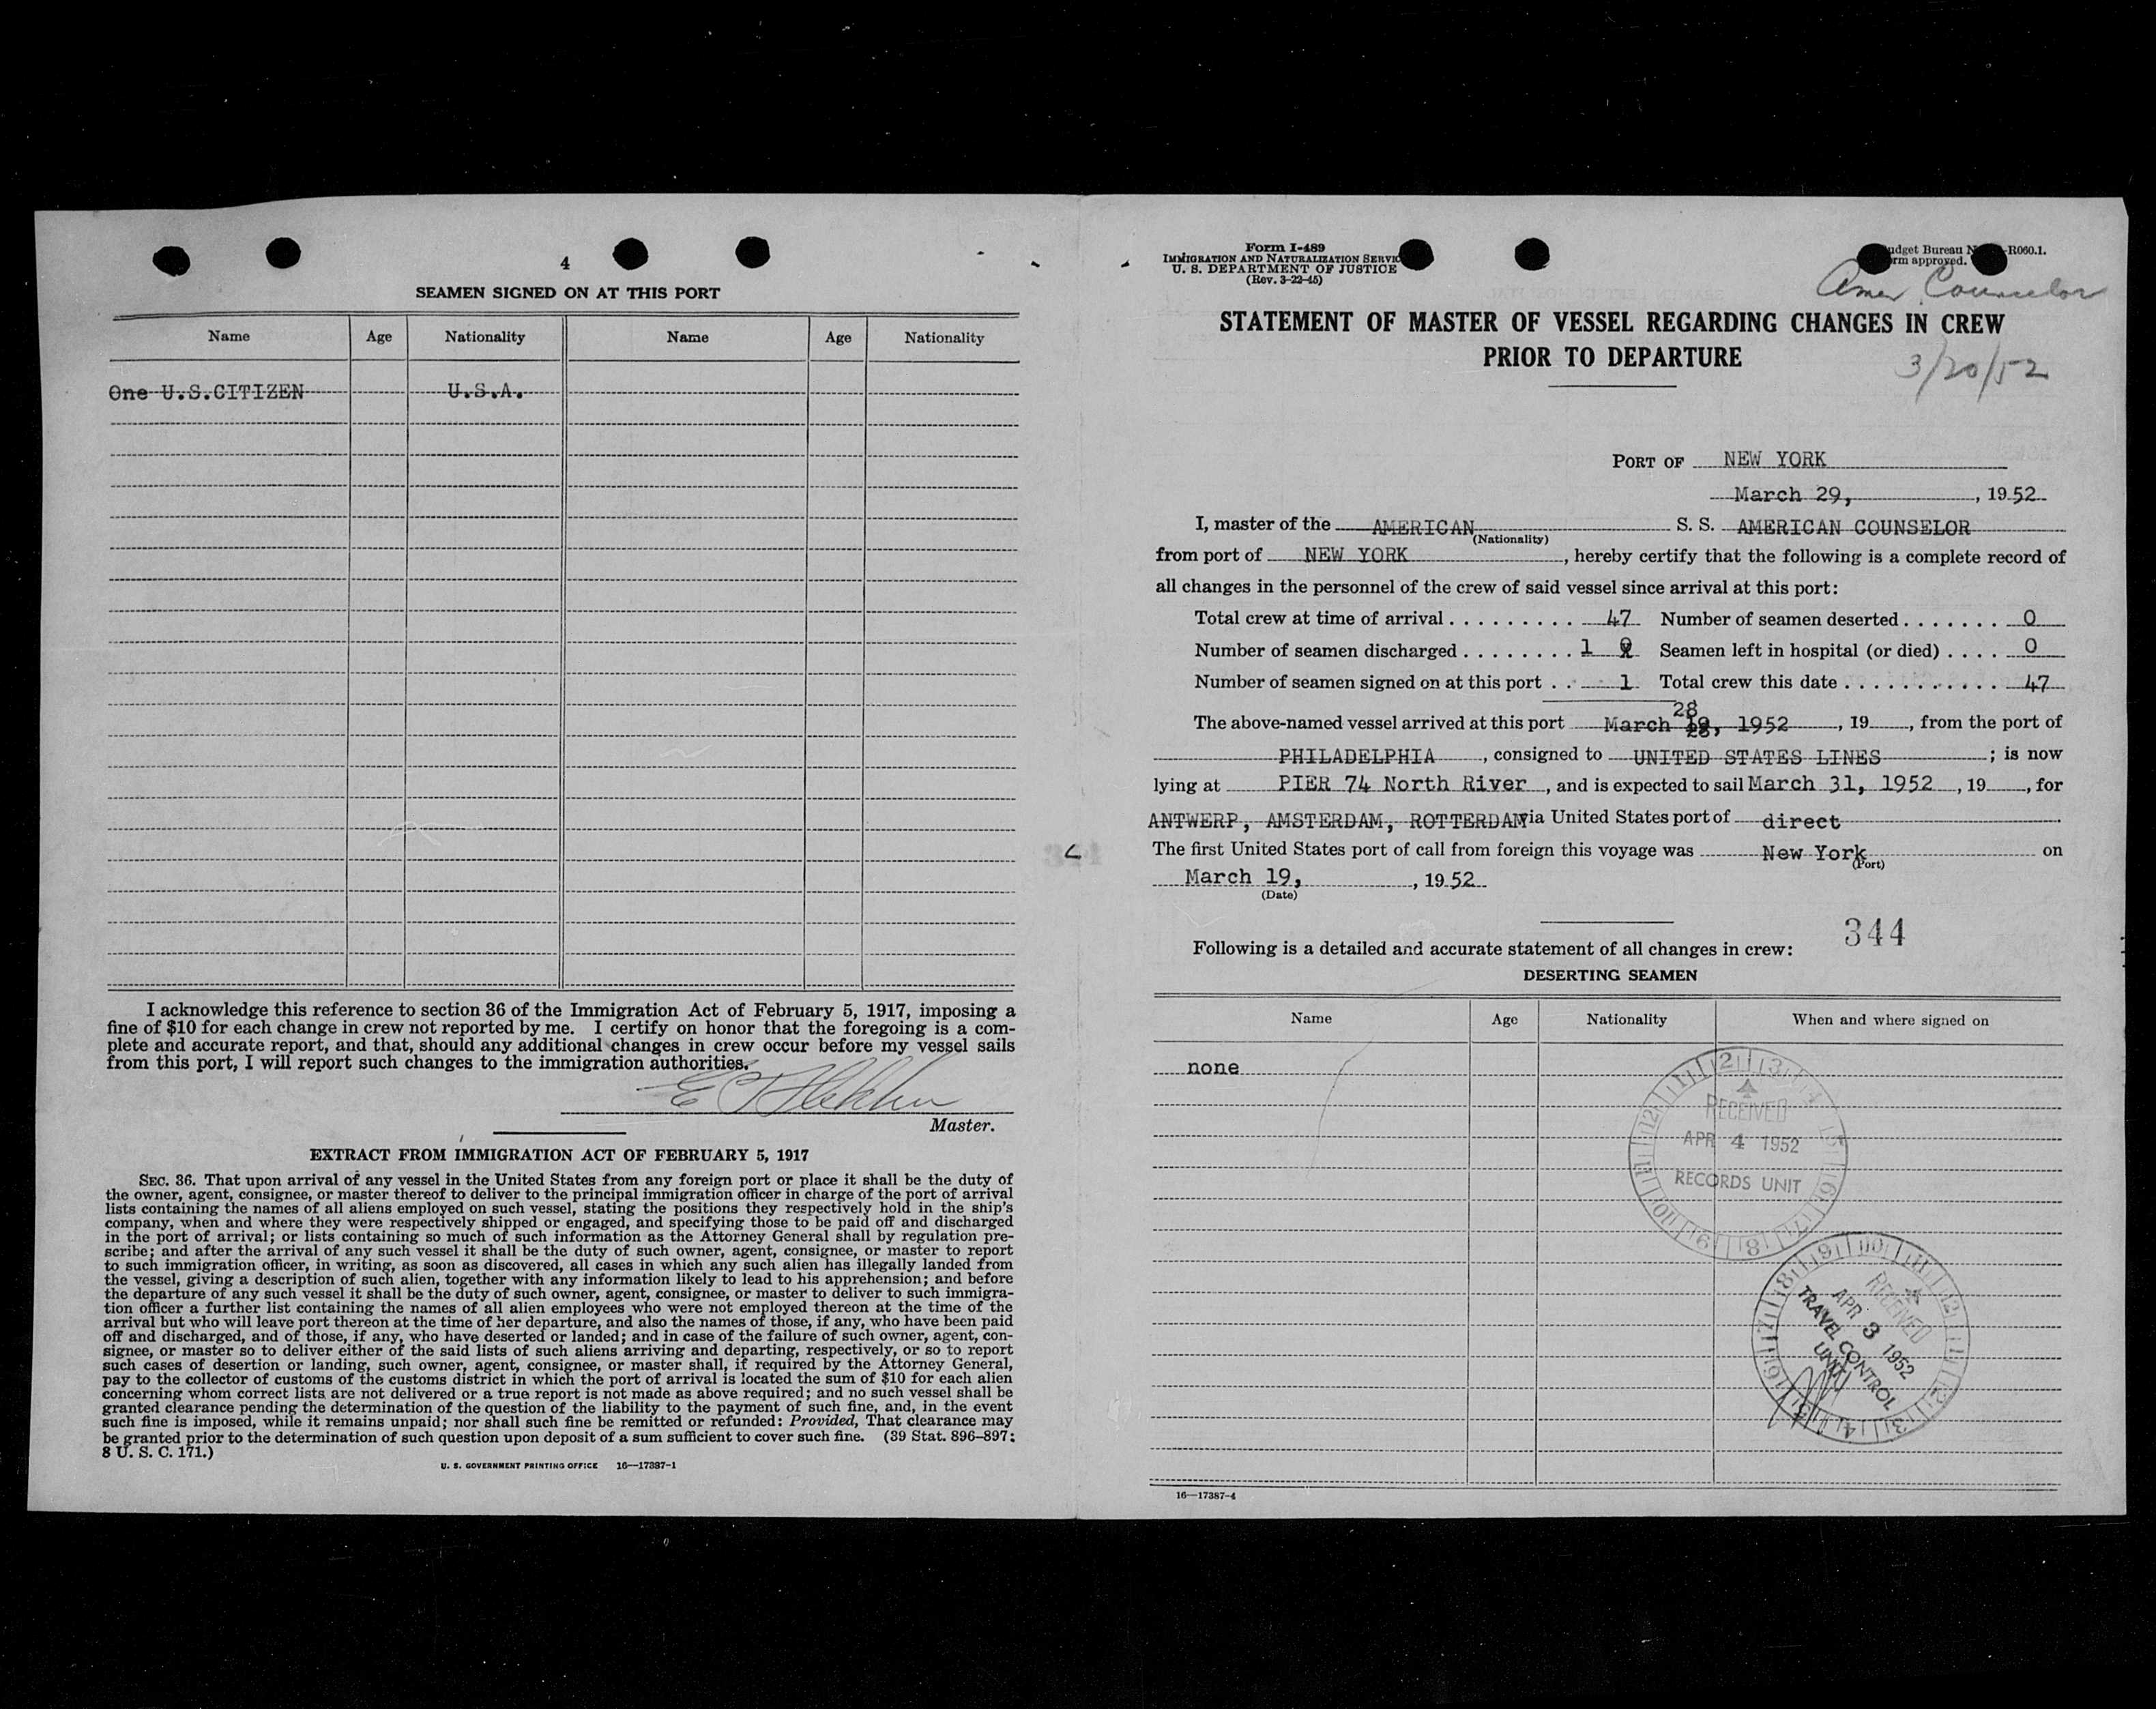 4
SEAMEN SIGNED ON AT THIS PORT
Name Age Nationality Name Age Nationality
One U.S.CITIZEN U.S.A.
I acknowledge this reference to section 36 of the Immigration Act of February 5, 1917, imposing a
fine of $10 for each change in crew not reported by me. I certify on honor that the foregoing is a com-
plete and accurate report, and that, should any additional changes in crew occur before my vessel sails
from this port, I will report such changes to the immigration authorities.
Master.
EXTRACT FROM IMMIGRATION ACT OF FEBRUARY 5, 1917
SEC. 36. That upon arrival of any vessel in the United States from any foreign port or place it shall be the duty of
the owner, agent, consignee, or master thereof to deliver to the principal immigration officer in charge of the port of arrival
lists containing the names of all aliens employed on such vessel, stating the positions they respectively hold in the ship's
company, when and where they were respectively shipped or engaged, and specifying those to be paid off and discharged
in the port of arrival; or lists containing so much of such information as the Attorney General shall by regulation pre-
scribe; and after the arrival of any such vessel it shall be the duty of such owner, agent, consignee, or master to report
to such immigration officer, in writing, as soon as discovered, all cases in which any such alien has illegally landed from
the vessel, giving a description of such alien, together with any information likely to lead to his apprehension; and before
the departure of any such vessel it shall be the duty of such owner, agent, consignee, or master to deliver to such immigra-
tion officer a further list containing the names of all alien employees who were not employed thereon at the time of the
arrival but who will leave port thereon at the time of her departure, and also the names of those, if any, who have been paid
off and discharged, and of those, if any, who have deserted or landed; and in case of the failure of such owner, agent, con-
signee, or master so to deliver either of the said lists of such aliens arriving and departing, respectively, or so to report
such cases of desertion or landing, such owner, agent, consignee, or master shall, if required by the Attorney General,
pay to the collector of customs of the customs district in which the port of arrival is located the sum of $10 for each alien
concerning whom correct lists are not delivered or a true report is not made as above required; and no such vessel shall be
granted clearance pending the determination of the question of the liability to the payment of such fine, and, in the event
such fine is imposed, while it remains unpaid; nor shall such fine be remitted or refunded: Provided, That clearance may
be granted prior to the determination of such question upon deposit of a sum sufficient to cover such fine. (39 Stat. 896–897;
8 U. S. C. 171.)
U. S. GOVERNMENT PRINTING OFFICE 16—17387-1
Form I-489
IMMIGRATION AND NATURALIZATION SERVIC
U. S. DEPARTMENT OF JUSTICE
(Rev. 3-22-45)
udget Bureau N -R060.1.
rm approved.
Amer Counselor
STATEMENT OF MASTER OF VESSEL REGARDING CHANGES IN CREW
PRIOR TO DEPARTURE
3/20/52
PORT OF NEW YORK
March 29, , 19 52
I, master of the AMERICAN S. S. AMERICAN COUNSELOR
(Nationality)
from port of NEW YORK , hereby certify that the following is a complete record of
all changes in the personnel of the crew of said vessel since arrival at this port:
Total crew at time of arrival . . . . . . . . . 47 Number of seamen deserted . . . . . . . 0
Number of seamen discharged . . . . . . . . 1 Seamen left in hospital (or died) . . . . 0
Number of seamen signed on at this port . . 1 Total crew this date . . . . . . . . . . . . 47
28
The above-named vessel arrived at this port March 19, 1952 , 19 , from the port of
PHILADELPHIA , consigned to UNITED STATES LINES ; is now
lying at PIER 74 North River , and is expected to sail March 31, 1952 , 19 , for
ANTWERP, AMSTERDAM, ROTTERDAM via United States port of direct
The first United States port of call from foreign this voyage was New York on
(Port)
March 19, , 19 52
(Date)
344
Following is a detailed and accurate statement of all changes in crew:
DESERTING SEAMEN
Name Age Nationality When and where signed on
none
RECEIVED
APR 4 1952
RECORDS UNIT
RECEIVED
APR 3 1952
TRAVEL CONTROL
UNIT
16—17387-4